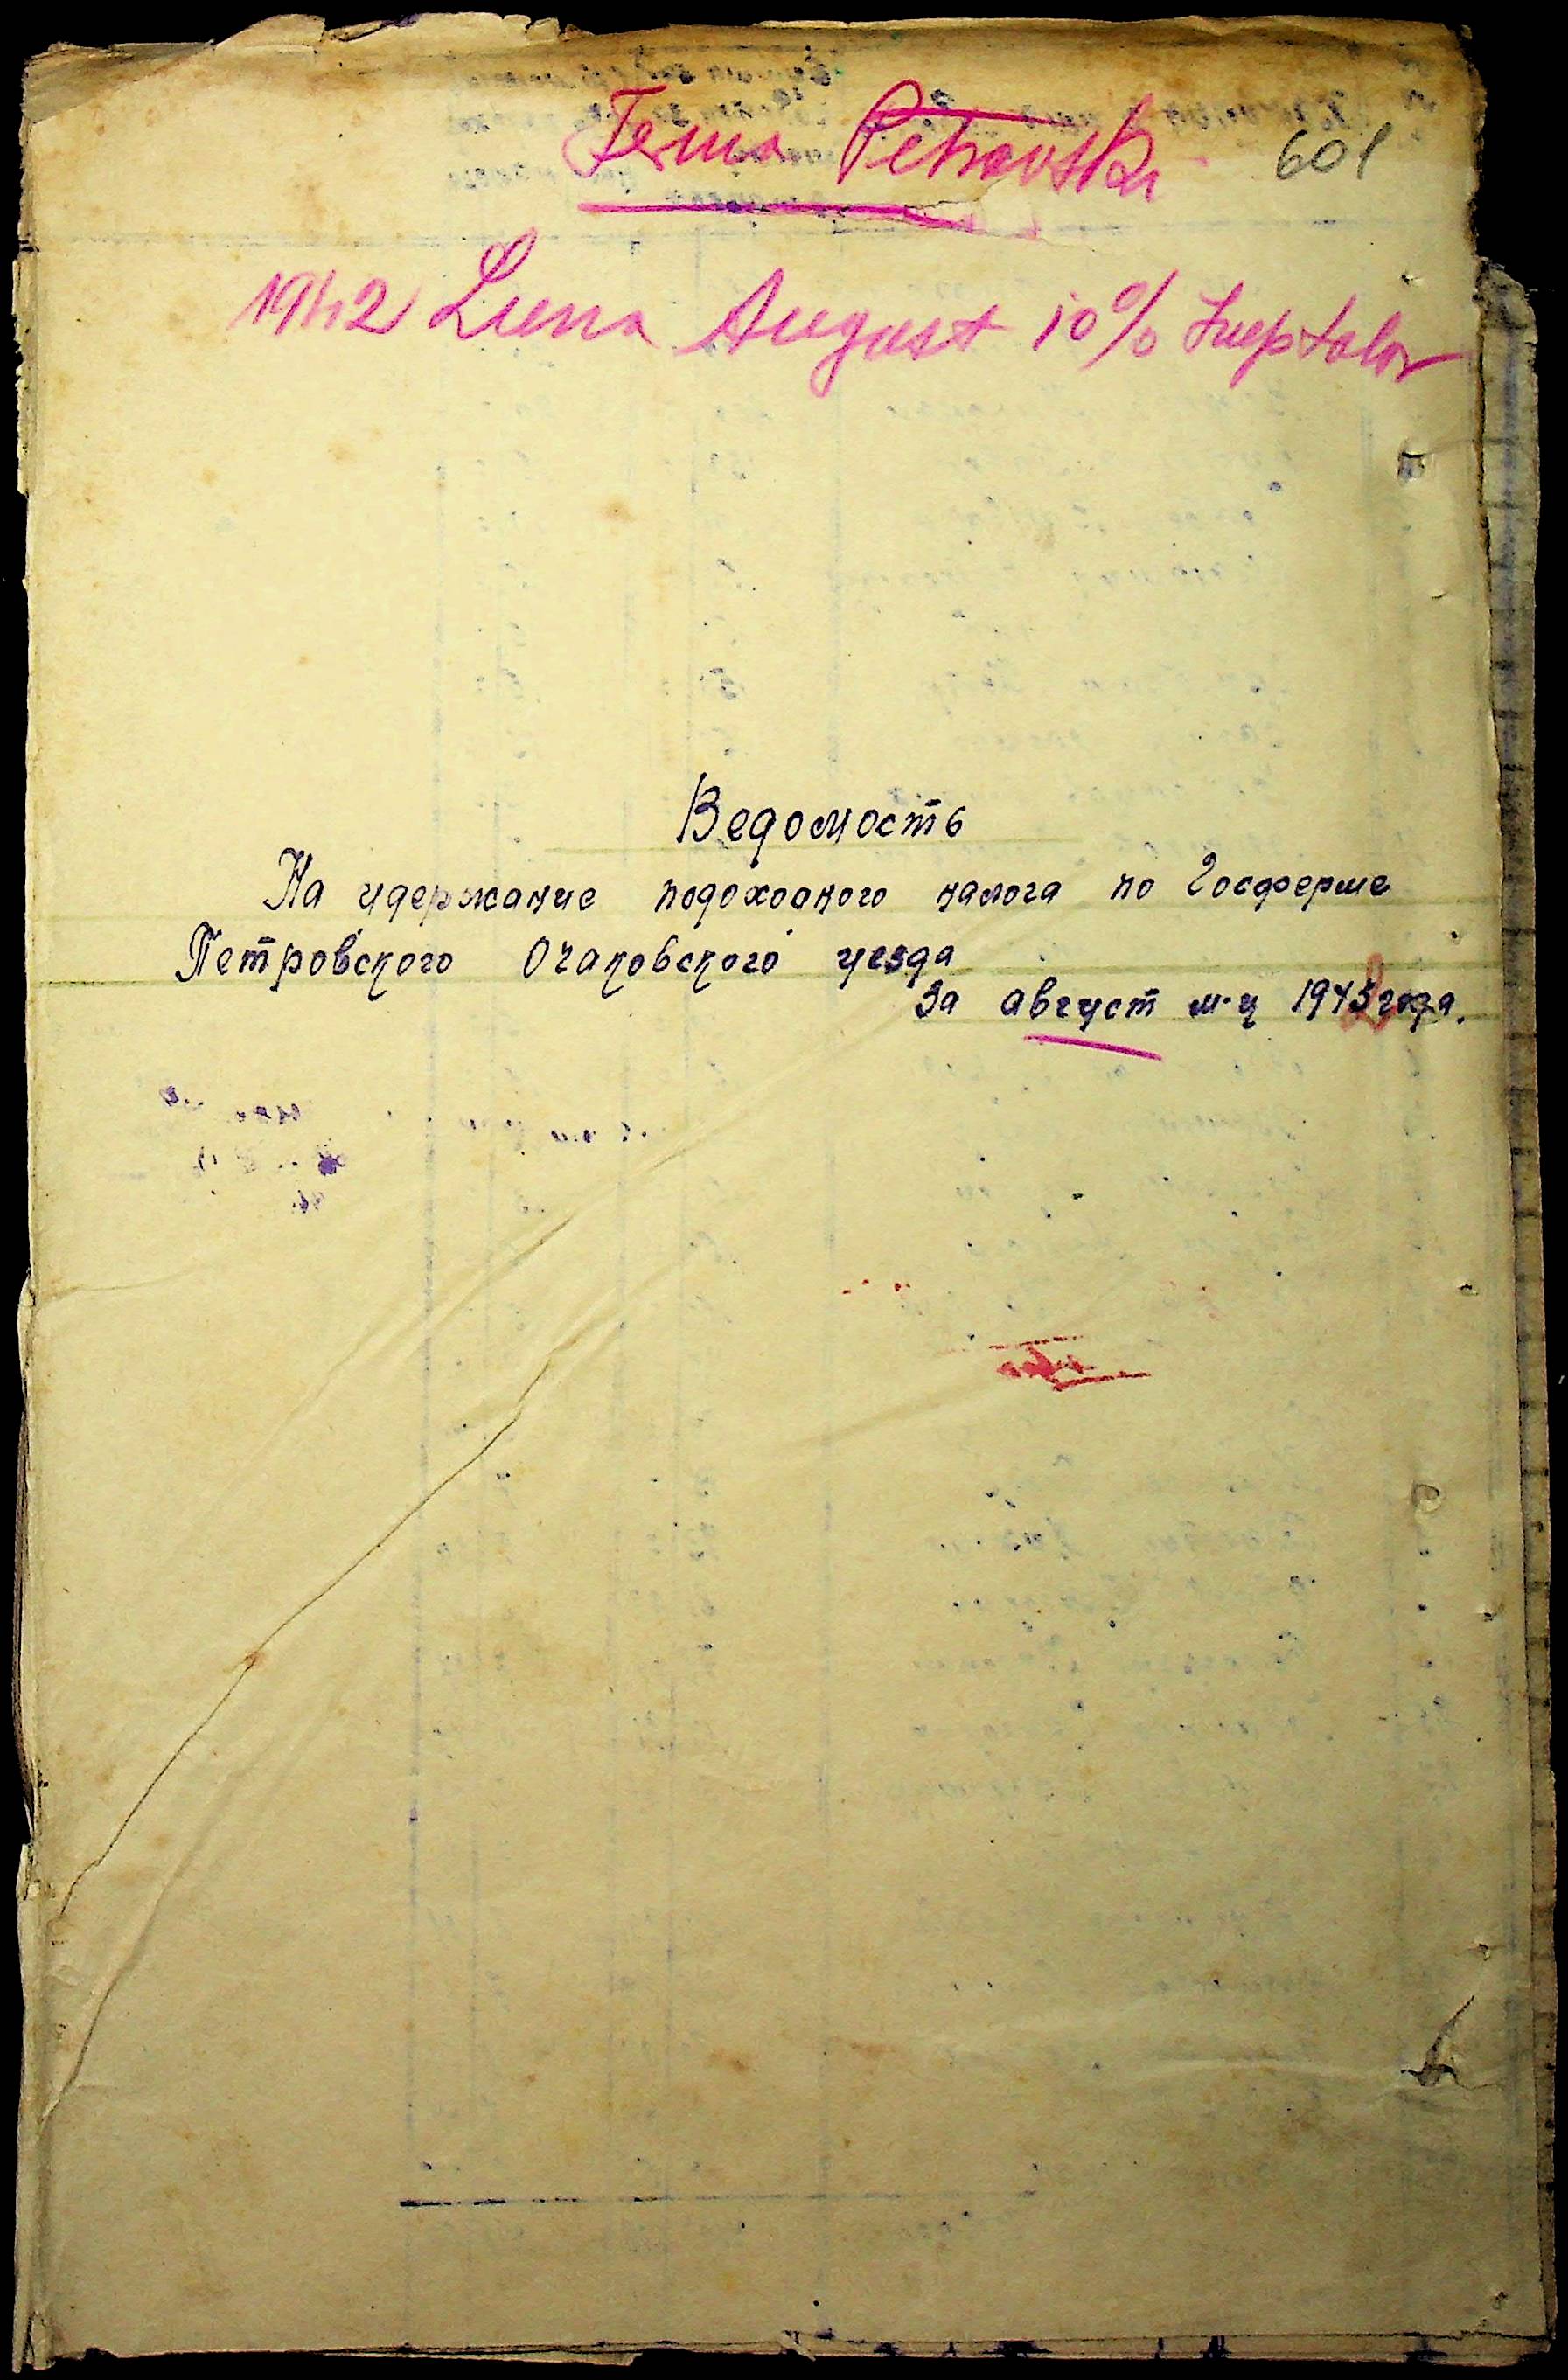 Ferma Petrovski
601
1942 Luna August 10% Lueptalor
Ведомость
На удержание подоходного налога по Госферме
Петровского Очаковского уезда
За август м-ц 1942 года.